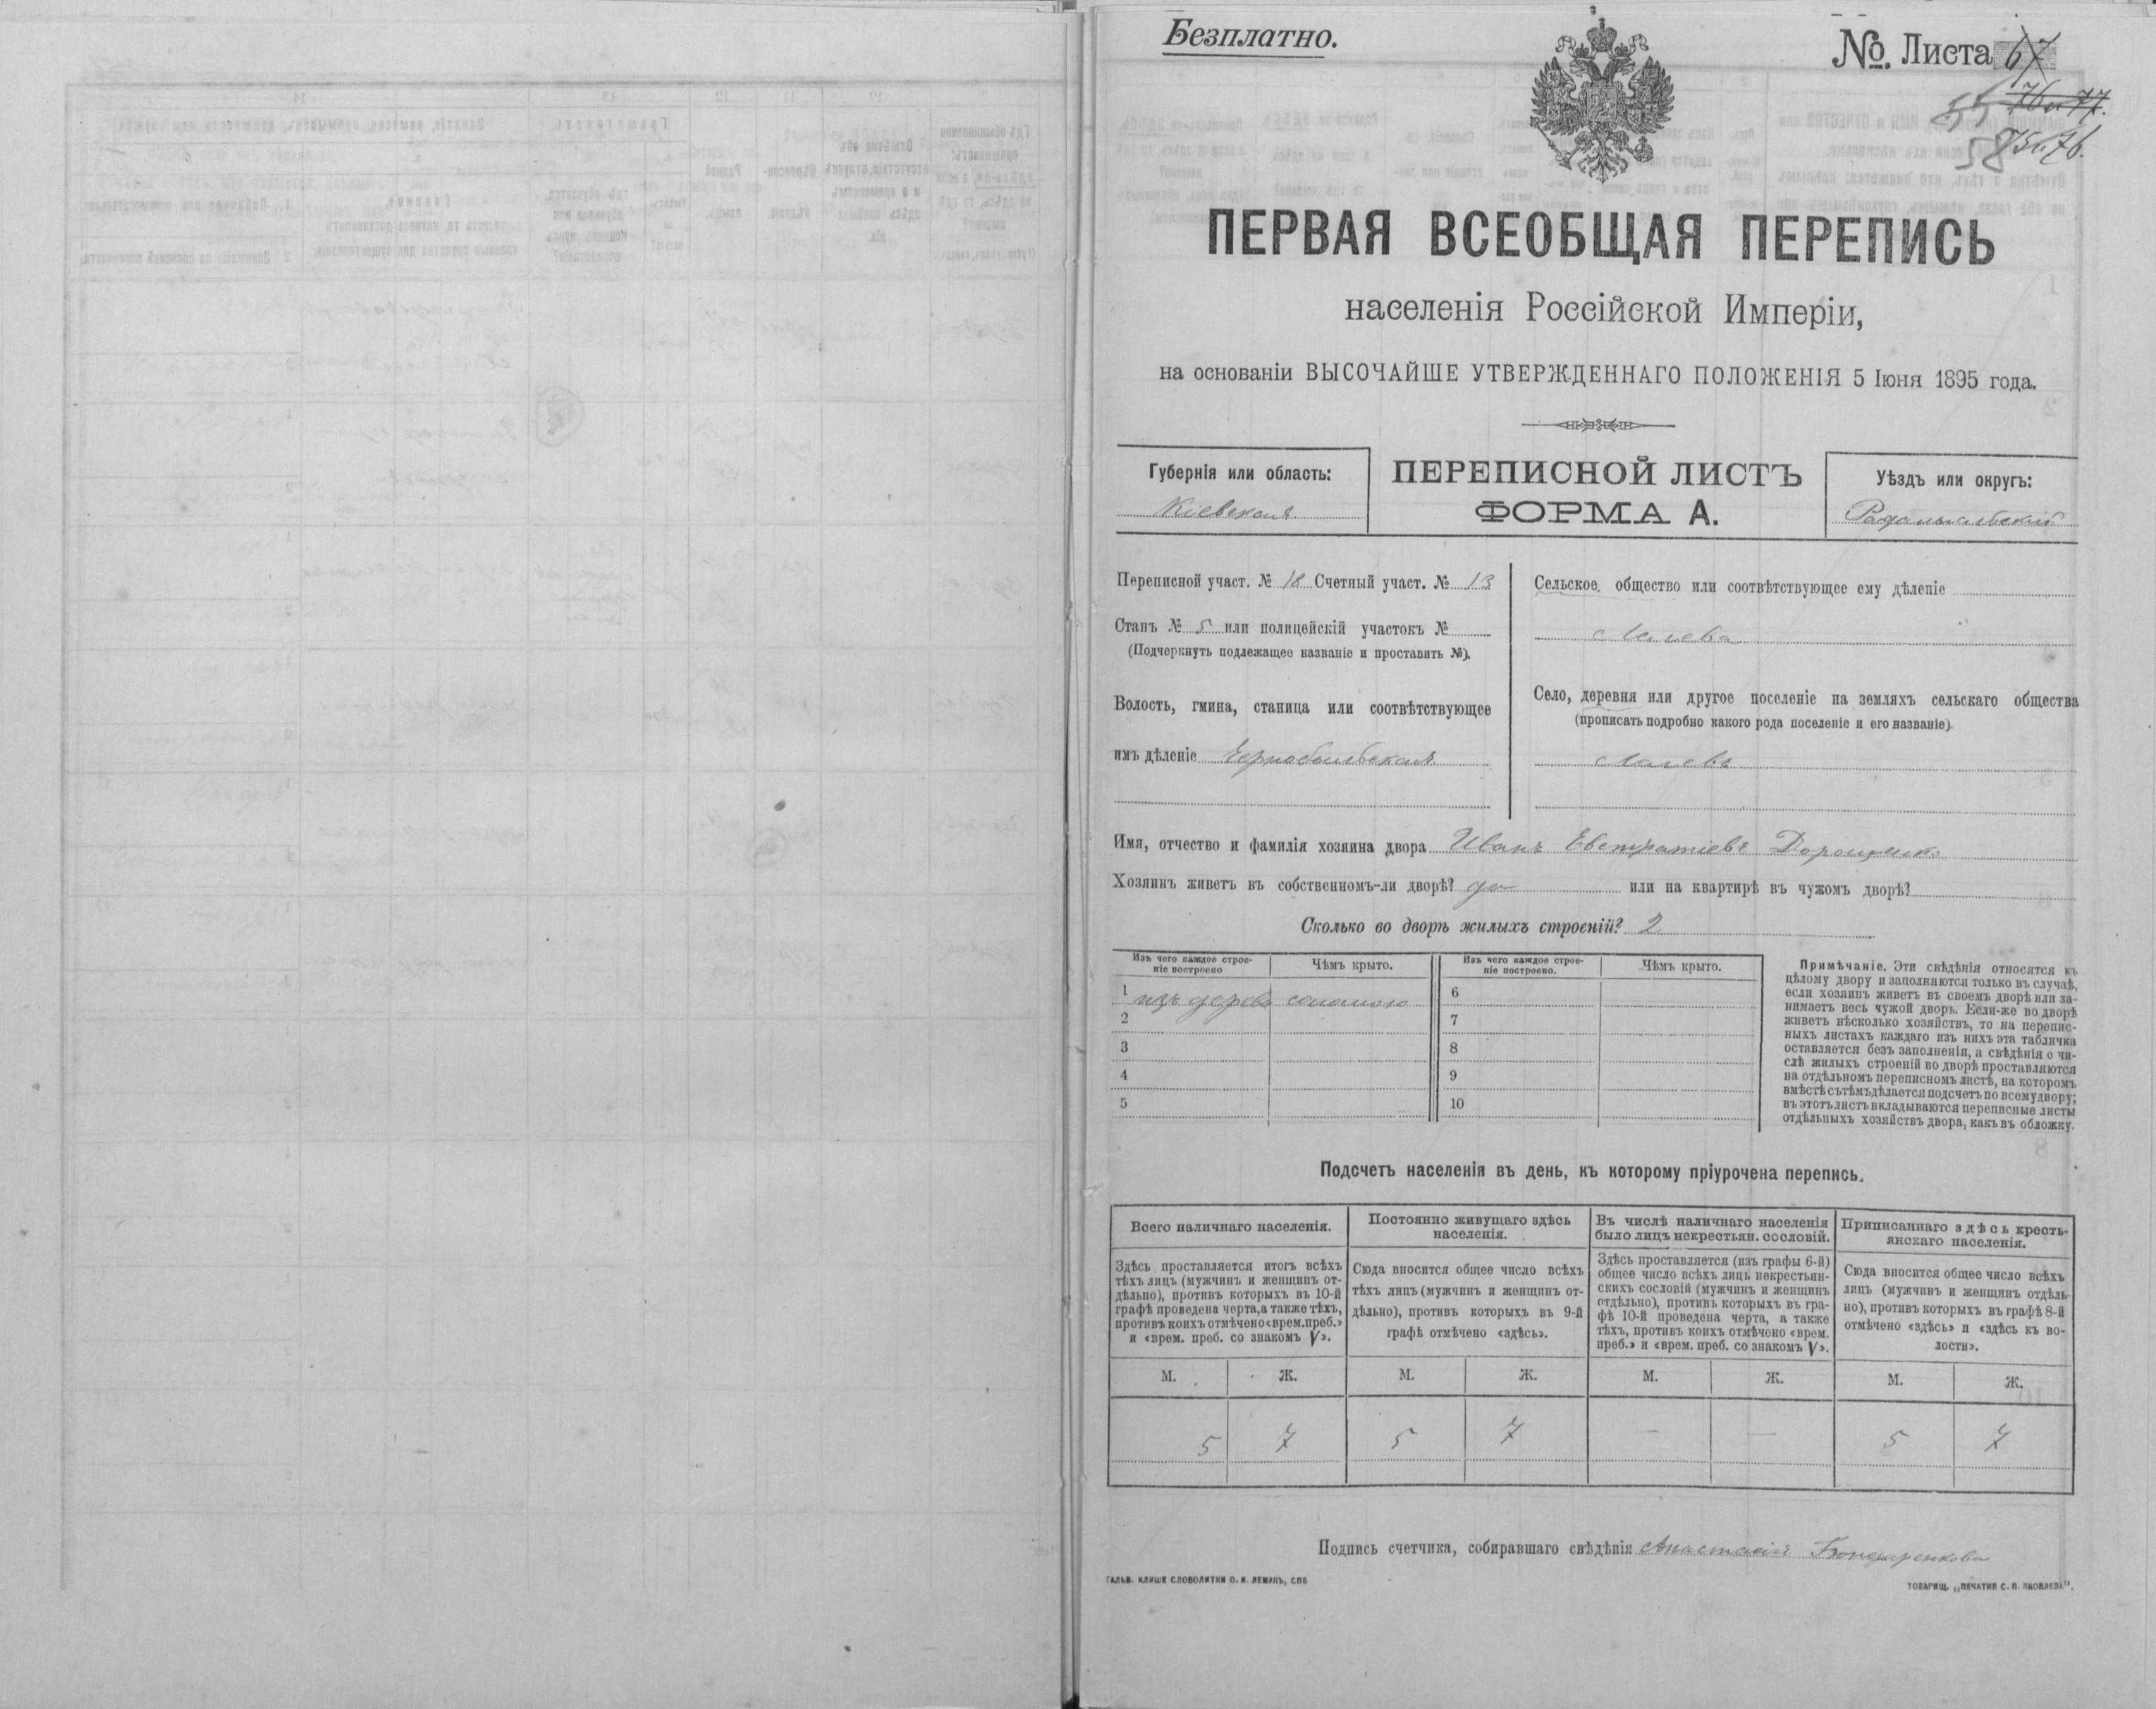 Безплатно.
№. Листа 67
76 и 77.
55
75 и 76.
58
ПЕРВАЯ ВСЕОБЩАЯ ПЕРЕПИСЬ
населенія Россійской Имперіи,
на основаніи ВЫСОЧАЙШЕ УТВЕРЖДЕННАГО ПОЛОЖЕНІЯ 5 Іюня 1895 года.
Губернія или область:
Кіевская
ПЕРЕПИСНОЙ ЛИСТЪ
ФОРМА А.
Уѣздъ или округъ:
Радомысльскій
Переписной участ. № 18 Счетный участ. № 13
Станъ № 5 или полицейскій участокъ №
(Подчеркнуть подлежащее названіе и проставить №).
Волость, гмина, станица или соотвѣтствующее
имъ дѣленіе Чернобыльская
Сельское общество или соотвѣтствующее ему дѣленіе
Село, деревня или другое поселеніе на земляхъ сельскаго общества
(прописать подробно какого рода поселеніе и его названіе).
Имя, отчество и фамилія хозяина двора Иванъ Евстратіевъ
Хозяинъ живетъ въ собственномъ-ли дворѣ? да или на квартирѣ въ чужомъ дворѣ?
Сколько во дворѣ жилыхъ строеній? 2
Изъ чего каждое строе-
ніе построено
Чѣмъ крыто.
Изъ чего каждое строе-
ніе построено.
Чѣмъ крыто.
1 изъ дерева соломою
2
3
4
5
6
7
8
9
10
Примѣчаніе. Эти свѣдѣнія относятся къ
цѣлому двору и заполняются только въ случаѣ,
если хозяинъ живетъ въ своемъ дворѣ или за-
нимаетъ весь чужой дворъ. Если-же во дворѣ
живетъ нѣсколько хозяйствъ, то на перепис-
ныхъ листахъ каждаго изъ нихъ эта табличка
оставляется безъ заполненія, а свѣдѣнія о чи-
слѣ жилыхъ строеній во дворѣ проставляются
на отдѣльномъ переписномъ листѣ, на которомъ
вмѣстѣ съ тѣмъ дѣлается подсчетъ по всему двору;
въ этотъ листъ вкладываются переписные листы
отдѣльныхъ хозяйствъ двора, какъ въ обложку.
Подсчетъ населенія въ день, къ которому пріурочена перепись.
Всего наличнаго населенія.
Здѣсь проставляется итогъ всѣхъ
тѣхъ лицъ (мужчинъ и женщинъ от-
дѣльно), противъ которыхъ въ 10-й
графѣ проведена черта, а также тѣхъ,
противъ коихъ отмѣчено «врем. преб.»
и «врем. преб. со знакомъ V».
Постоянно живущаго здѣсь
населенія.
Сюда вносится общее число всѣхъ
тѣхъ лицъ (мужчинъ и женщинъ от-
дѣльно), противъ которыхъ въ 9-й
графѣ отмѣчено «здѣсь».
Въ числѣ наличнаго населенія
было лицъ некрестьян. сословій.
Здѣсь проставляется (изъ графы 6-й)
общее число всѣхъ лицъ некрестьян-
скихъ сословій (мужчинъ и женщинъ
отдѣльно), противъ которыхъ въ гра-
фѣ 10-й проведена черта, а также
тѣхъ, противъ коихъ отмѣчено «врем.
преб.» и «врем. преб. со знакомъ V».
Приписаннаго здѣсь кресть-
янскаго населенія.
Сюда вносится общее число всѣхъ
лицъ (мужчинъ и женщинъ отдѣль-
но), противъ которыхъ въ графѣ 8-й
отмѣчено «здѣсь» и «здѣсь къ во-
лости».
М. Ж. М. Ж. М. Ж. М. Ж.
5 7 5 7 — — 5 7
Подпись счетчика, собиравшаго свѣдѣнія Анастасія Бондаренкова
ГАЛЬВ. КЛИШЕ СЛОВОЛИТНИ О. И. ЛЕМАНЪ, СПБ
ТОВАРИЩ. „ПЕЧАТНЯ С. П. ЯКОВЛЕВА“.